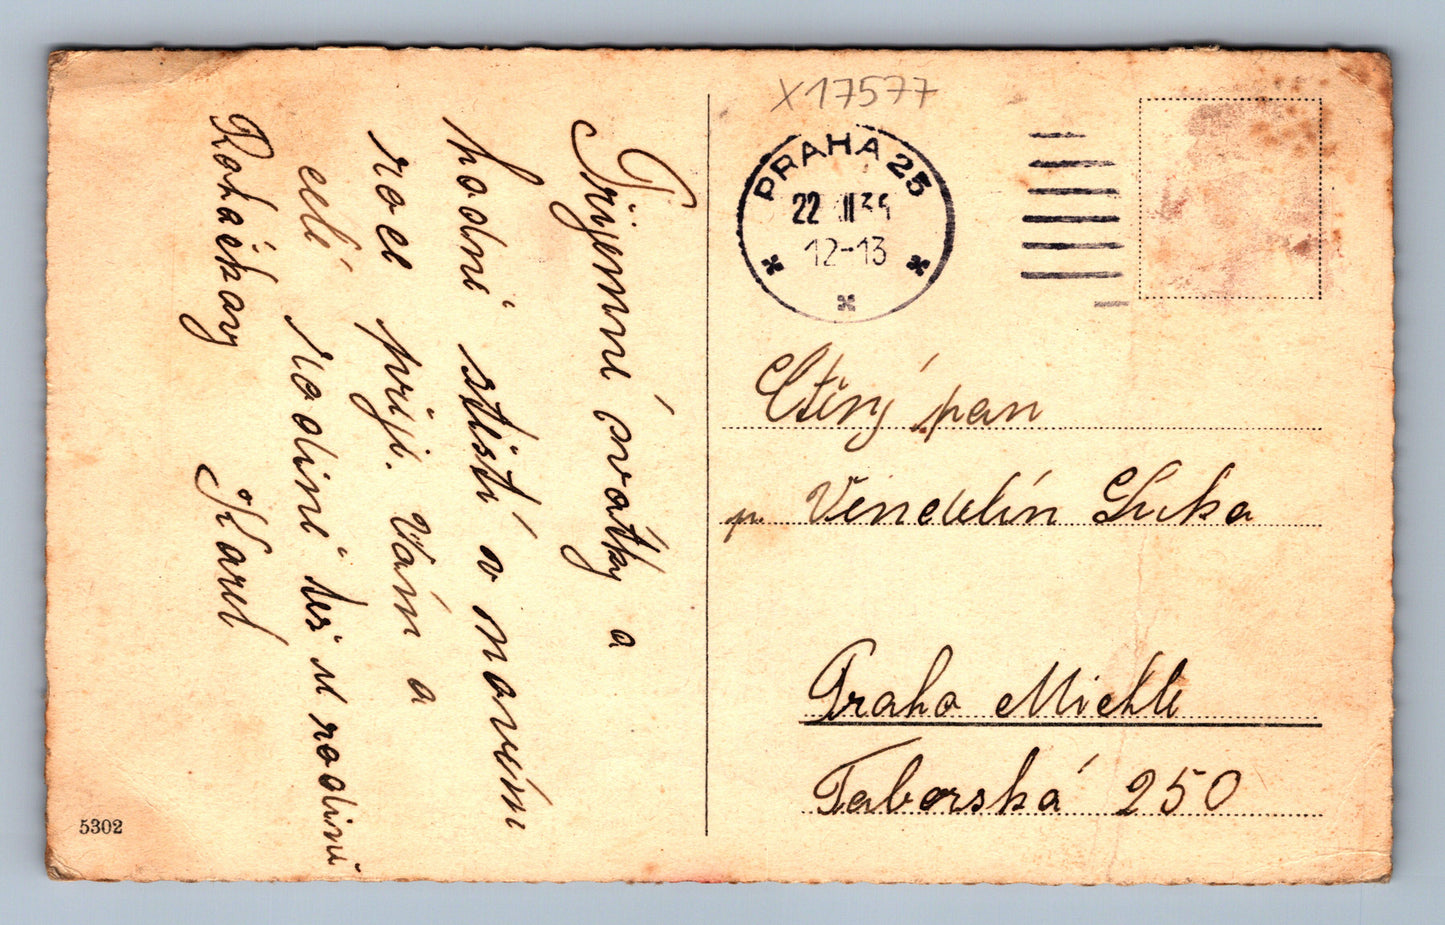 X17577
PRAHA 25
22 XII 35
12-13
Příjemné svátky a
hodně štěstí v novém
roce přeji Vám a
celé rodině též i rodině
Roháčkovy
Karel
Ctěný pan
p. Vendelín Luka
Praha Michle
Táborská 250
5302